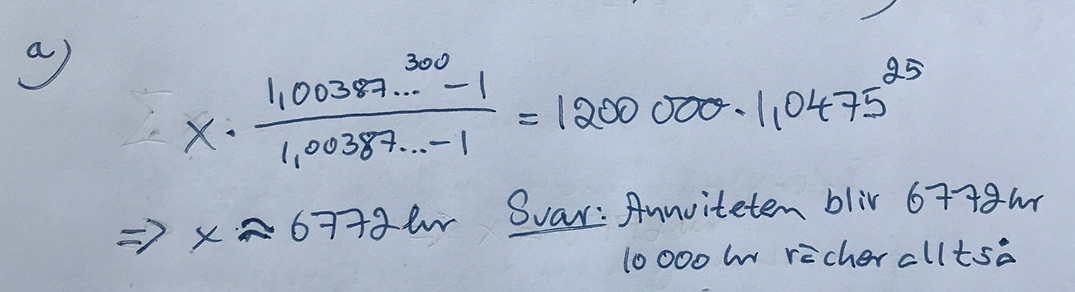 a)
x · (1,00387...^300 - 1) / (1,00387... - 1) = 1200 000 · 1,0475^25
=> x ≈ 6772 kr Svar: Annuiteten blir 6772 kr
10 000 kr räcker alltså